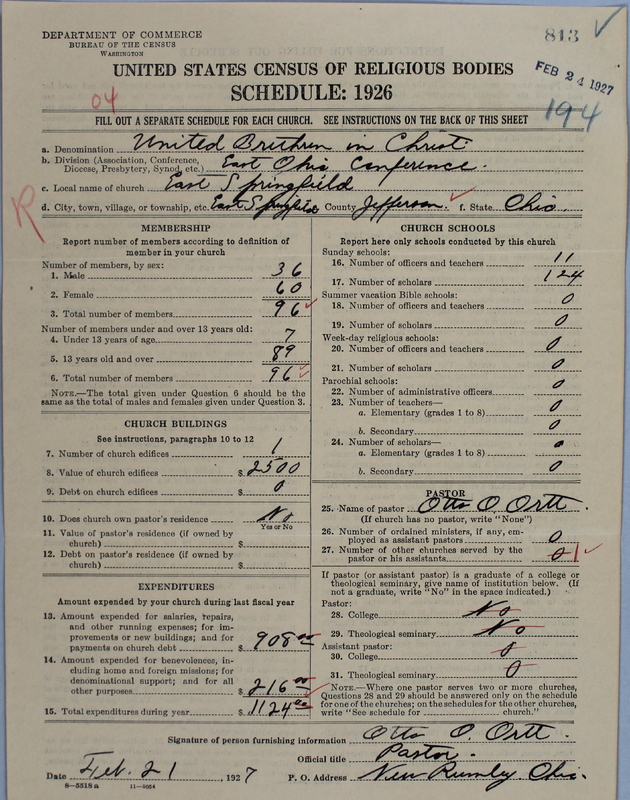 DEPARTMENT OF COMMERCE
BUREAU OF THE CENSUS
WASHINGTON
813
FEB 24 1927
194
04
UNITED STATES CENSUS OF RELIGIOUS BODIES
SCHEDULE: 1926
FILL OUT A SEPARATE SCHEDULE FOR EACH CHURCH. SEE INSTRUCTIONS ON THE BACK OF THIS SHEET
a. Denomination United Brethren in Christ
b. Division (Association, Conference, Diocese, Presbytery, Synod, etc.) East Ohio Conference.
c. Local name of church East Springfield
d. City, town, village, or township, etc. East Springfield County Jefferson. f. State Ohio.
R
MEMBERSHIP
Report number of members according to definition of
member in your church
Number of members, by sex:
1. Male 36
2. Female 60
3. Total number of members 96
Number of members under and over 13 years old:
4. Under 13 years of age 7
5. 13 years old and over 89
6. Total number of members 96
NOTE.—The total given under Question 6 should be
same as the total of males and females given under Question 3.
CHURCH BUILDINGS
See instructions, paragraphs 10 to 12
7. Number of church edifices 1
8. Value of church edifices $ 2500
9. Debt on church edifices $ 0
10. Does church own pastor's residence No
Yes or No
11. Value of pastor's residence (if owned by
church) $
12. Debt on pastor's residence (if owned by
church) $
EXPENDITURES
Amount expended by your church during last fiscal year
13. Amount expended for salaries, repairs,
and other running expenses; for im-
provements or new buildings; and for
payments on church debt $ 908 00
14. Amount expended for benevolences, in-
cluding home and foreign missions; for
denominational support; and for all
other purposes $ 216 00
15. Total expenditures during year $ 1124 00
CHURCH SCHOOLS
Report here only schools conducted by this church
Sunday schools:
16. Number of officers and teachers 11
17. Number of scholars 124
Summer vacation Bible schools:
18. Number of officers and teachers 0
19. Number of scholars 0
Week-day religious schools:
20. Number of officers and teachers 0
21. Number of scholars 0
Parochial schools:
22. Number of administrative officers 0
23. Number of teachers—
a. Elementary (grades 1 to 8) 0
b. Secondary 0
24. Number of scholars—
a. Elementary (grades 1 to 8) 0
b. Secondary 0
PASTOR
25. Name of pastor Otto O. Ortt.
(If church has no pastor, write "None")
26. Number of ordained ministers, if any, em-
ployed as assistant pastors 0
27. Number of other churches served by the
pastor or his assistants 0 1
If pastor (or assistant pastor) is a graduate of a college or
theological seminary, give name of institution below. (If
not a graduate, write "No" in the space indicated.)
Pastor:
28. College No
29. Theological seminary No
Assistant pastor:
30. College 0
31. Theological seminary 0
NOTE.—Where one pastor serves two or more churches,
Questions 28 and 29 should be answered only on the schedule
for one of the churches; on the schedules for the other churches,
write "See schedule for church."
Signature of person furnishing information Otto O. Ortt.
Official title Pastor.
Date Feb. 21, 1927 P. O. Address New Rumley Ohio.
8-5518 a 11-9054